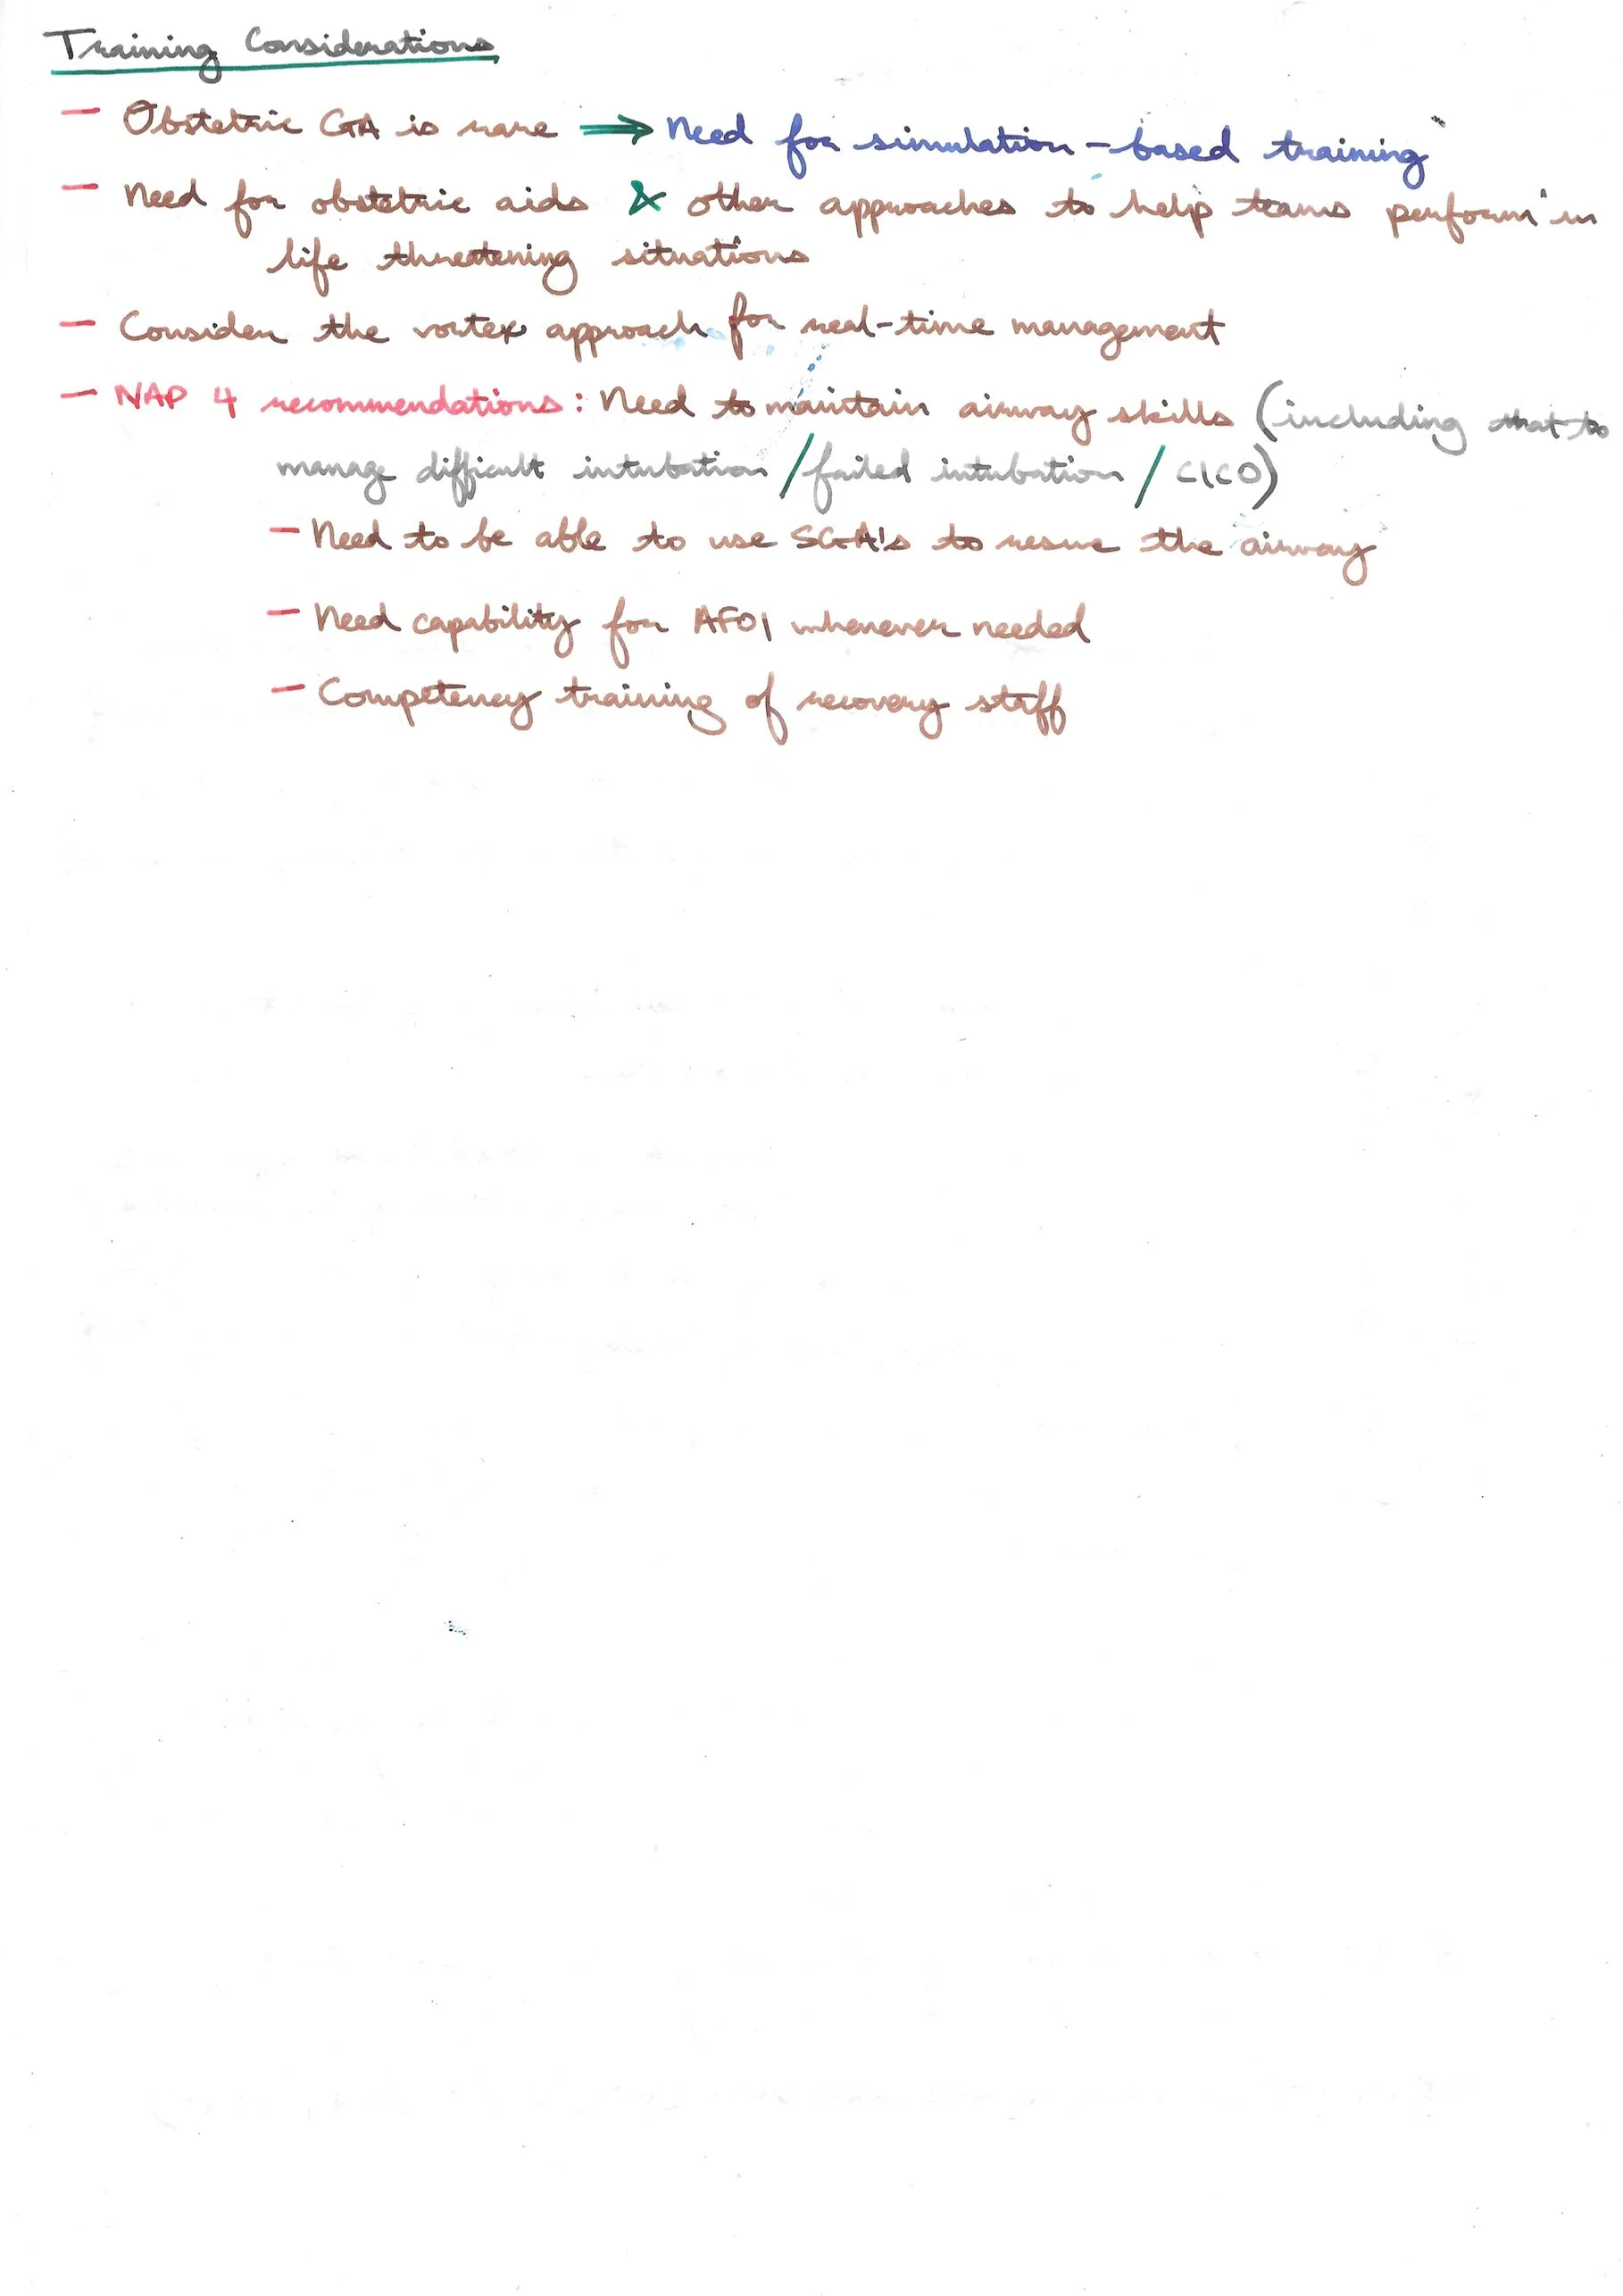 Training Considerations
- Obstetric GA is rare → Need for simulation-based training
- Need for obstetric aids & other approaches to help teams perform in
life threatening situations
- Consider the vortex approach for real-time management
- NAP 4 recommendations: Need to maintain airway skills (including that to
manage difficult intubation / failed intubation / CICO)
- Need to be able to use SGA's to rescue the airway
- Need capability for AFOI whenever needed
- Competency training of recovery staff